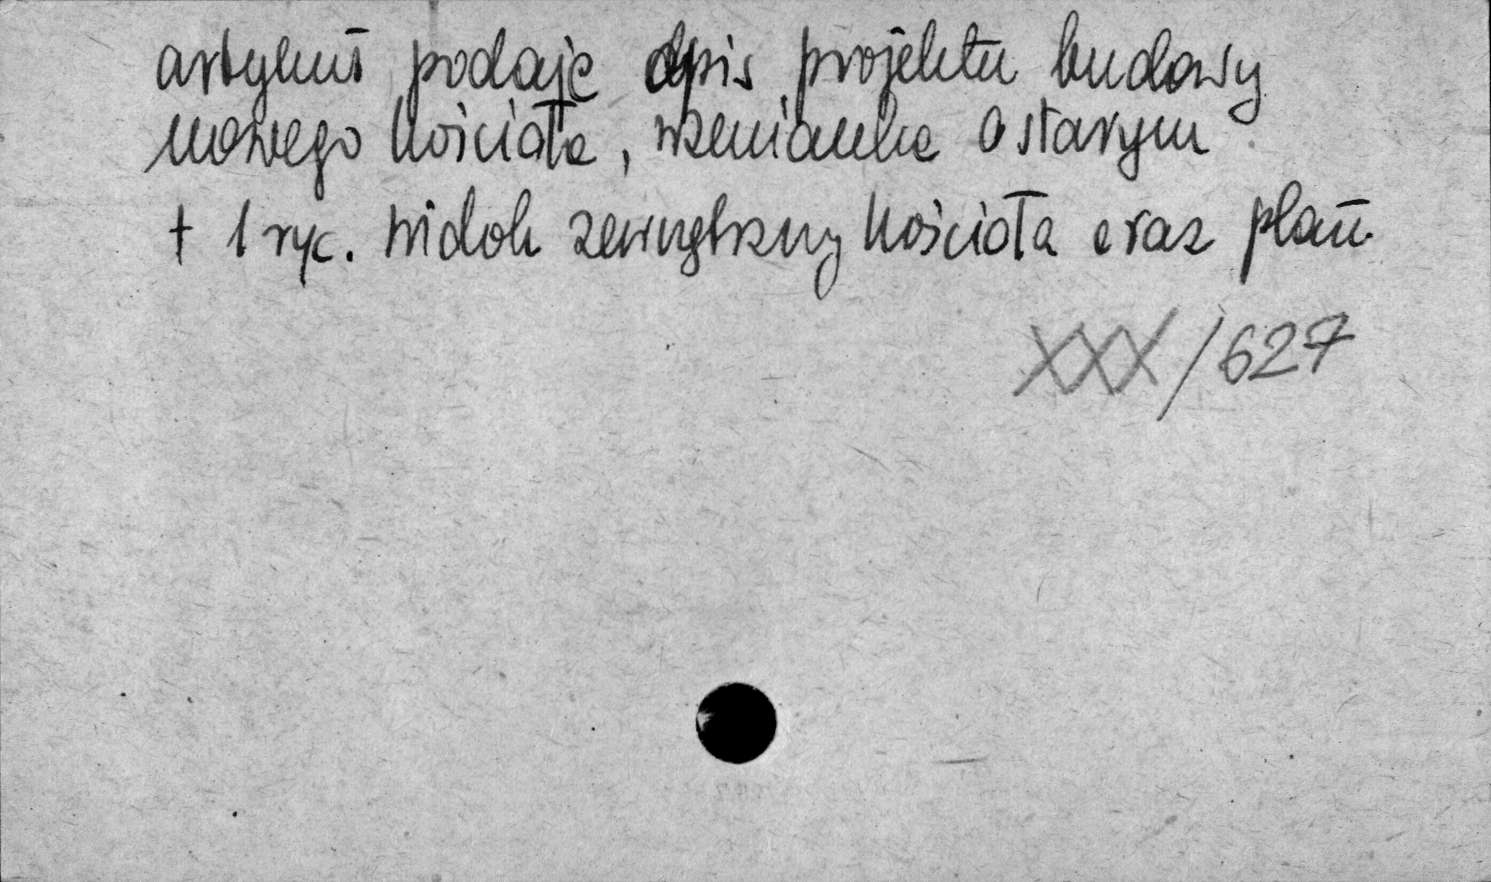 artykuł podaje opis projektu budowy
nowego kościoła, wzmianka o starym
+ 1 ryc. widok zewnętrzny kościoła oraz plan.
XXX/627